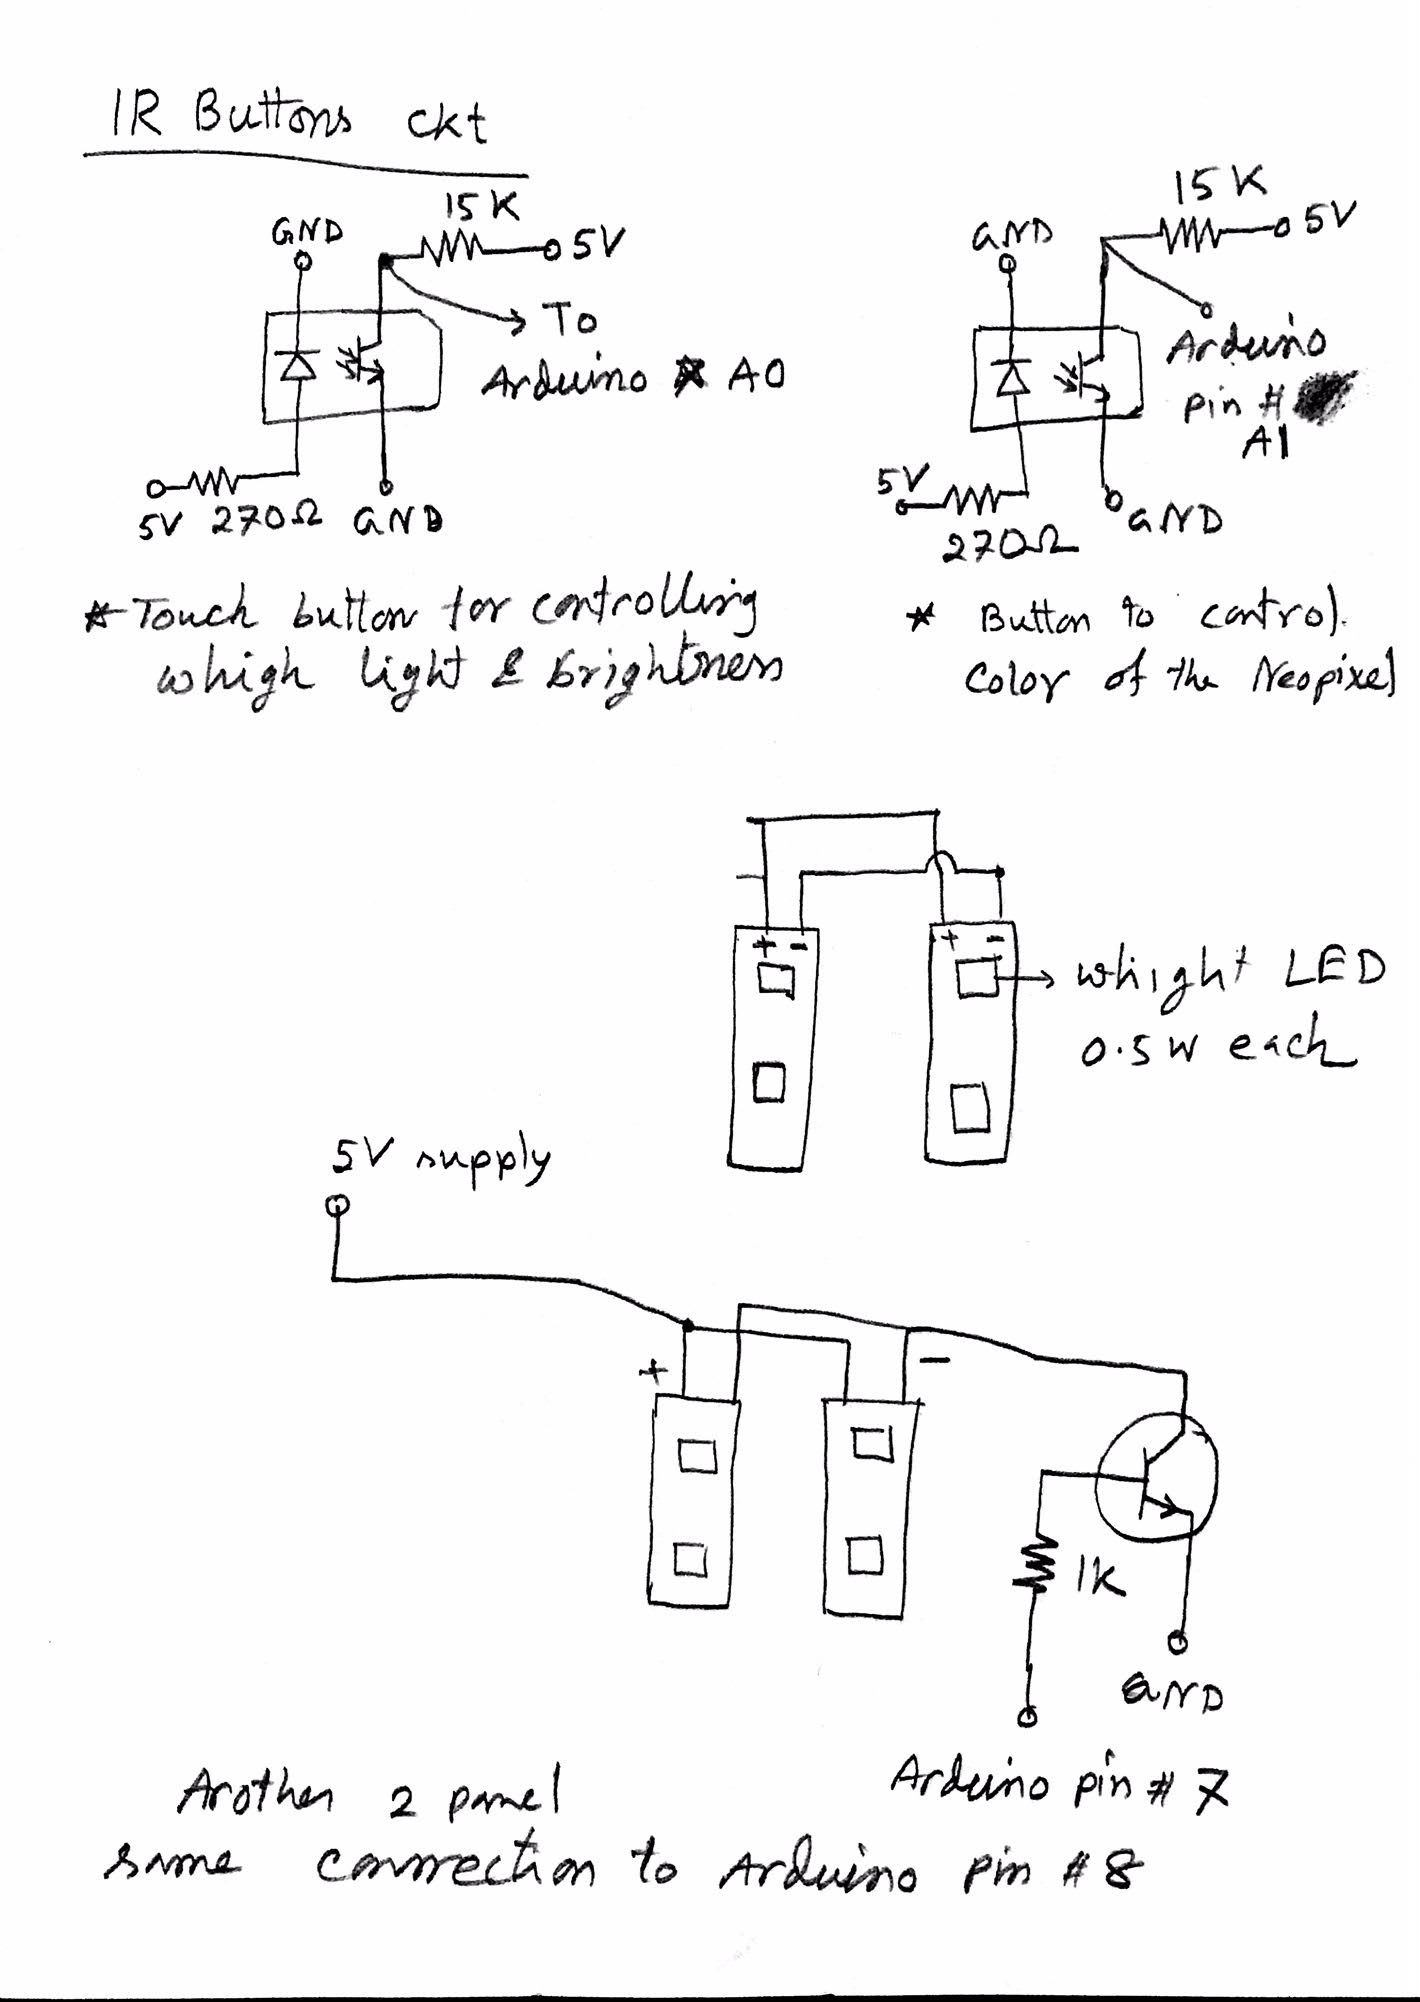 IR Buttons ckt
15K
GND
5V
To
Arduino A0
5V 270Ω GND
* Touch button for controlling
whigh light & brightness
15K
GND
5V
Arduino
pin #
A1
5V
270Ω
GND
* Button to control.
Color of the Neopixel
+ -
+ -
whight LED
0.5W each
5V supply
+
-
1K
GND
Arduino pin # 7
Another 2 panel
same connection to Arduino pin # 8